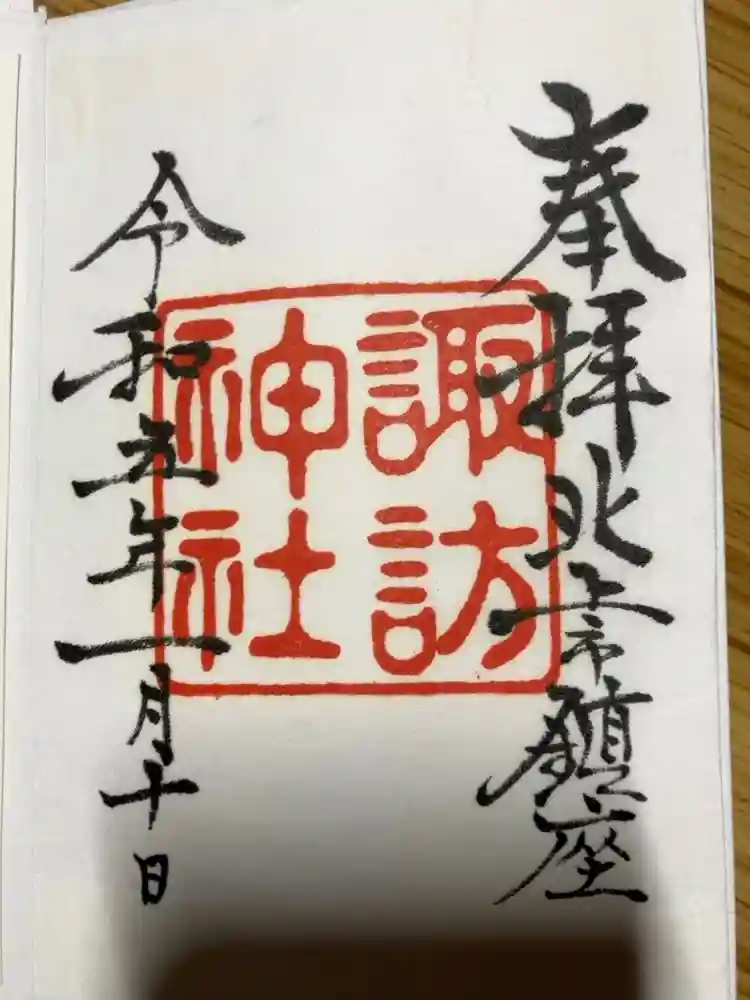 奉拝北上市鎮座
諏訪
神社
令和五年一月十日